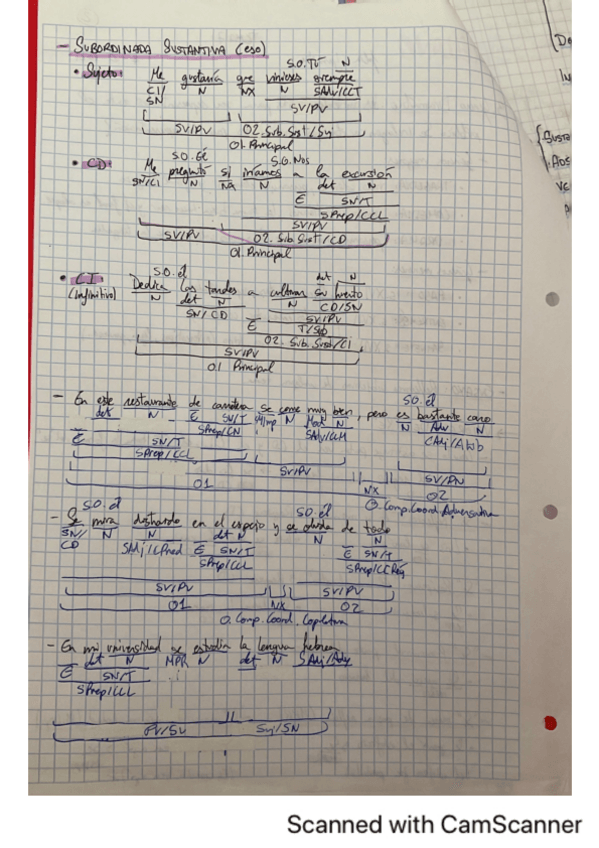 - SUBORDINADA SUSTANTIVA (eso)
S.O. TÚ N
• Sujeto: Me gustaría que vinieses siempre
CI/ N NX N SAdv/CCT
SN
SV/PV
SV/PV O2. Sub. Sust/Suj
O1. Principal
S.O. Él S.O. Nos
• CD: Me preguntó si iríamos a la excursión
SN/CI N NX N det N
E SN/T
SPrep/CCL
SV/PV
SV/PV O2. Sub Sust/CD
O1. Principal
S.O. él det N
• CI Dedica las tardes a cultivar su huerto
(infinitivo) N det N N CD/SN
SN/CD SV/PV
E T/Sub
O2. Sub. Sust/CI
SV/PV
O1 Principal
S.O. él
- En este restaurante de carretera se come muy bien, pero es bastante caro
det N E SN/T N Mod N N Adv N
SPrep/CN SAdv/CCM SAdj/Atrb
E SN/T
SPrep/CCL SV/PV SV/PN
O1 NX O2
O. Comp. Coord. Adversativa
S.O. él S.O. él
- Se mira deslumbrado en el espejo y se olvida de todo
SN/ N N det N N N
CD SAdj/CPred E SN/T E SN/T
SPrep/CCL SPrep/CReg
SV/PV SV/PV
O1 NX O2
O. Comp. Coord. Copulativa
- En mi universidad se estudia la lengua hebrea
det N MPR N det N SAdj/Ady
E SN/T
SPrep/CCL
PV/SV Suj/SN
Scanned with CamScanner